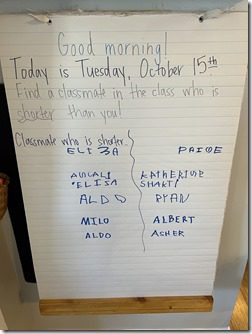 Good morning!
Today is Tuesday, October 15th
Find a classmate in the class who is
shorter than you!
Classmate who is shorter..
ELIZA PAIGE
KATHERINE
ELIZA SHAKTI
ALDO RYAN
MILO ALBERT
ALDO ASHER